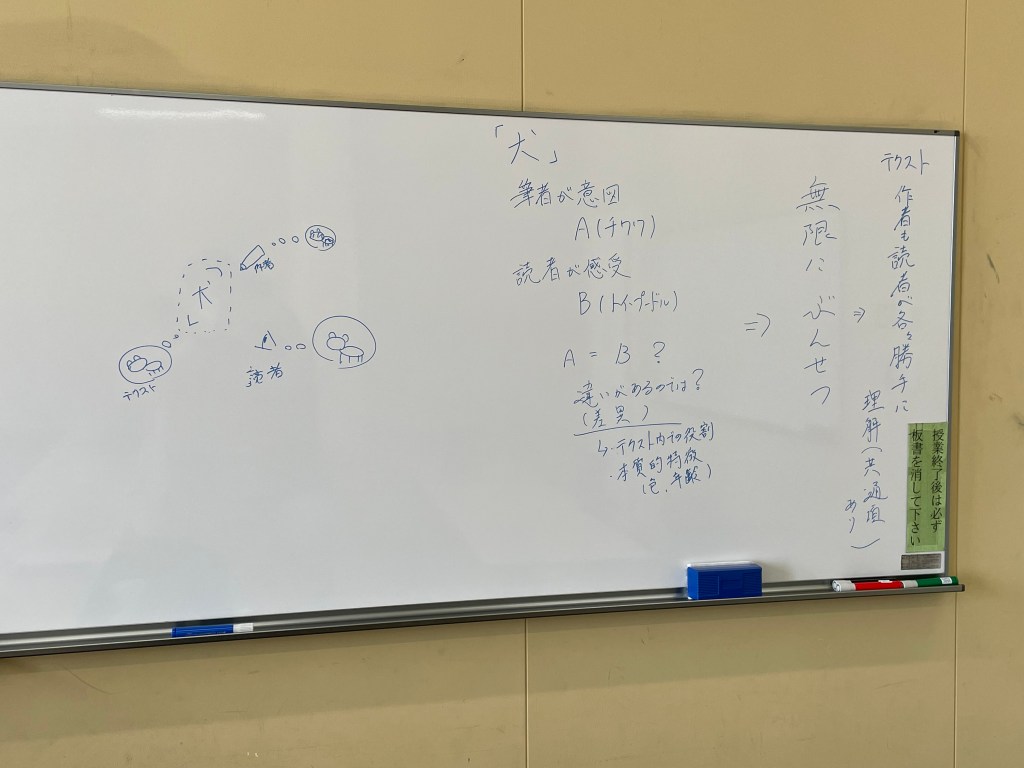 「犬」
作者
読者
テクスト
「犬」
筆者が意図
A(チワワ)
読者が感受
B(トイ・プードル)
A = B ?
違いがあるのでは?
(差異)
↳・テクスト内での役割
・本質的特徴
(色、年齢)
⇒
無限に ぶんせつ
⇒
テクスト
作者も読者も各々勝手に
理解(共通項
あり)
授業終了後は必ず
板書を消して下さい